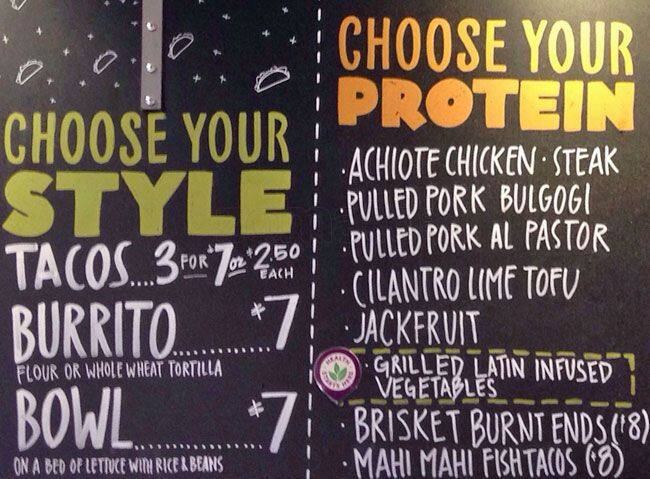 CHOOSE YOUR
STYLE
TACOS....3 FOR $7 or $2.50 EACH
BURRITO........... $7
FLOUR OR WHOLE WHEAT TORTILLA
BOWL............... $7
ON A BED OF LETTUCE WITH RICE & BEANS
CHOOSE YOUR
PROTEIN
· ACHIOTE CHICKEN · STEAK
· PULLED PORK BULGOGI
· PULLED PORK AL PASTOR
· CILANTRO LIME TOFU
· JACKFRUIT
· GRILLED LATIN INFUSED
VEGETABLES
· BRISKET BURNT ENDS ($8)
· MAHI MAHI FISH TACOS ($8)
HEALTH STARTS HERE